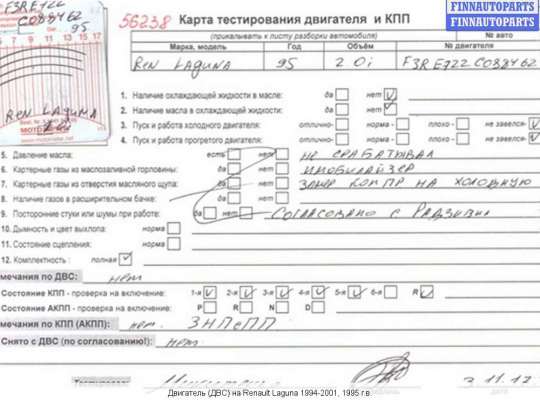 FINNAUTOPARTS.BY
JINNAUTOPARTS.BY
F3RE722
C088462
11 12 13 14 15 16 17
Ren Laguna
56238 Карта тестирования двигателя и КПП
(прикальвать к листу разборки автомобиля) № авто
Марка, модель Год Объём № двигателя
Ren Laguna 95 2 0i F3RE722C088462
1. Наличие охлаждающей жидкости в масле: да нет
2. Наличие масла в охлаждающей жидкости: да нет
3. Пуск и работа холодного двигателя: отлично- норма - плохо - не завелся-
4. Пуск и работа прогретого двигателя: отлично- норма- плохо - не завелся-
5. Давление масла: есть нет не срабатывал
6. Картерные газы из маслозаливной горловины: да нет иммобилайзер
7. Картерные газы из отверстия масляного щупа: да нет замер компр на холодную
8. Наличие газов в расширительном бачке: да нет
9. Посторонние стуки или шумы при работе: да нет Согласовано с
10. Дымность и цвет выхлопа: норма
11. Состояние сцепления: норма
12. Комплектность : полная
мечания по ДВС: норм
Состояние КПП - проверка на включение: 1-я 2-я 3-я 4-я 5-я 6-я R
Состояние АКПП - проверка на включение: P R N D
мечания по КПП (АКПП): норм. ЗНПСПП
Снято с ДВС (по согласованию!): норм
Тестировал
3.11.12
Двигатель (ДВС) на Renault Laguna 1994-2001, 1995 г.в.